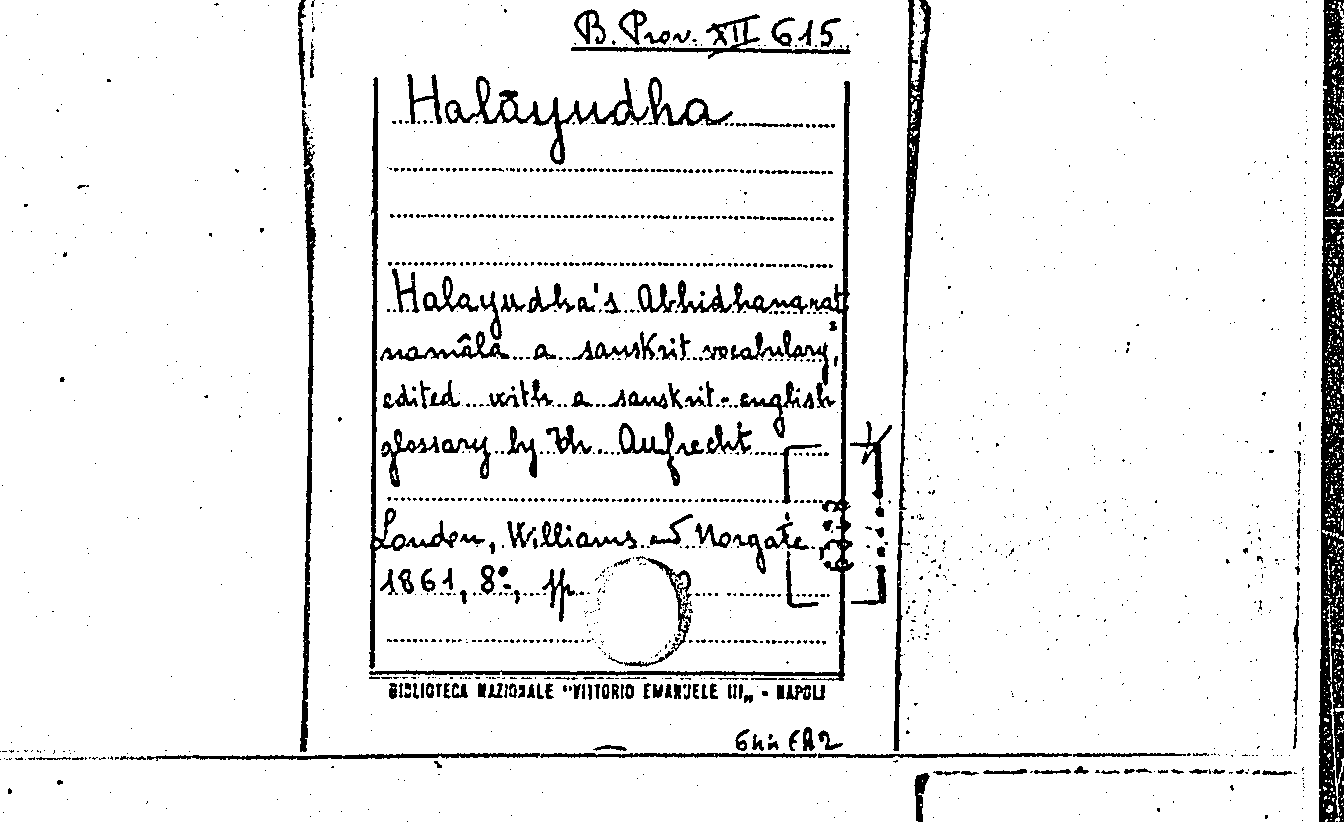 B. Prov. XII 615
Halāyudha
Halayudha's Abhidhanarat
namâla a sanskrit vocabulary,
edited with a sanskrit-english
glossary by Th. Aufrecht
London, Williams and Norgate
1861, 8º, pp
BIBLIOTECA NAZIONALE "VITTORIO EMANUELE III„ - NAPOLI